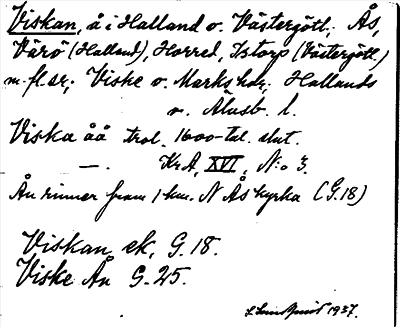 Viskan, å i Halland o. Västergötl.; Ås,
Värö (Halland), Horred, Istorp (Västergötl.)
m. fl. sr; Viske o. Marks hdr; Hallands
o. Älvsb. l.
Viska åå trol. 1600-tal. slut.
—. KrA, XVI, N:o 3.
Ån rinner fram 1 km. N Ås kyrka (G.18)
Viskan, ek, G. 18.
Viske Ån G. 25.
1937.